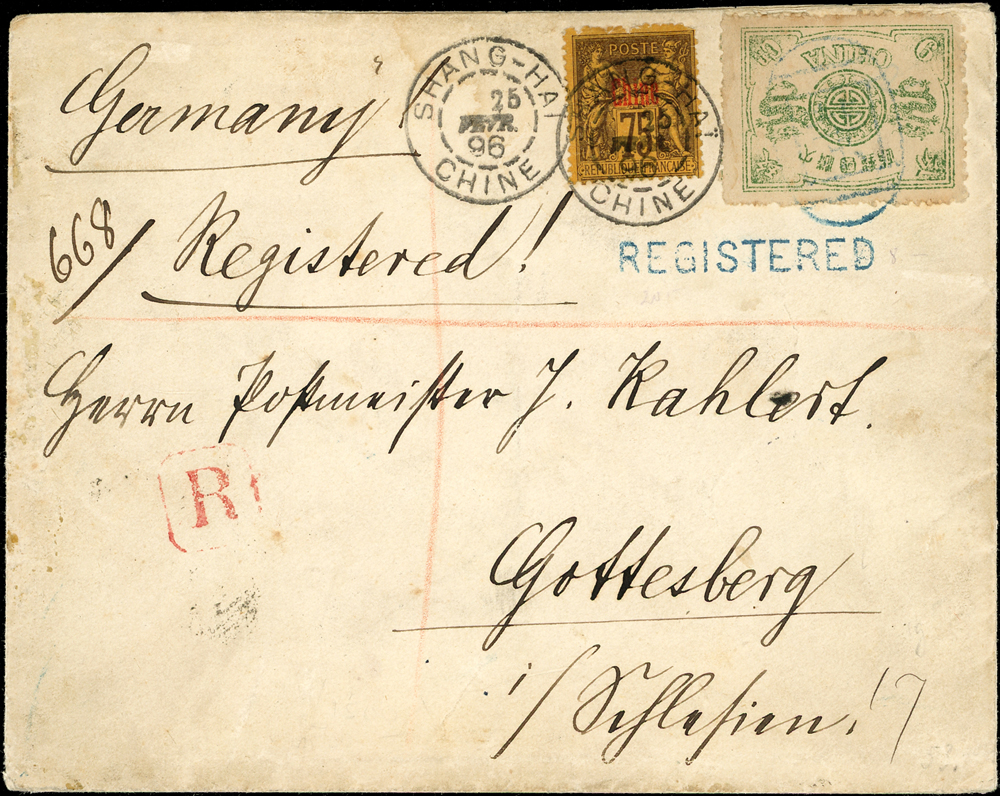 Germany
SHANG-HAI
25
FEVR.
96
CHINE
POSTE
Chine
75
REPUBLIQUE FRANCAISE
SHANG-HAÏ
25
CHINE
CHINA
9
668/ Registered!
REGISTERED
Herrn Postmeister J. Kahlert.
R
Gottesberg
i/Schlesien.
17